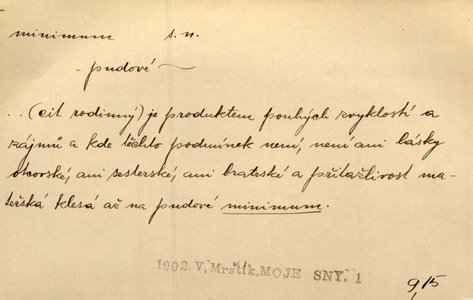 minimum s. n.
- pudové ~
.. (cit rodinný) je produktem pouhých zvyklostí a
zájmů a kde těchto podmínek není, není ani lásky
otcovské, ani sesterské, ani bratrské a přitažlivost ma-
teřská klesá až na pudové minimum.
1902. V, Mrštík, MOJE SNY. 1
9,15